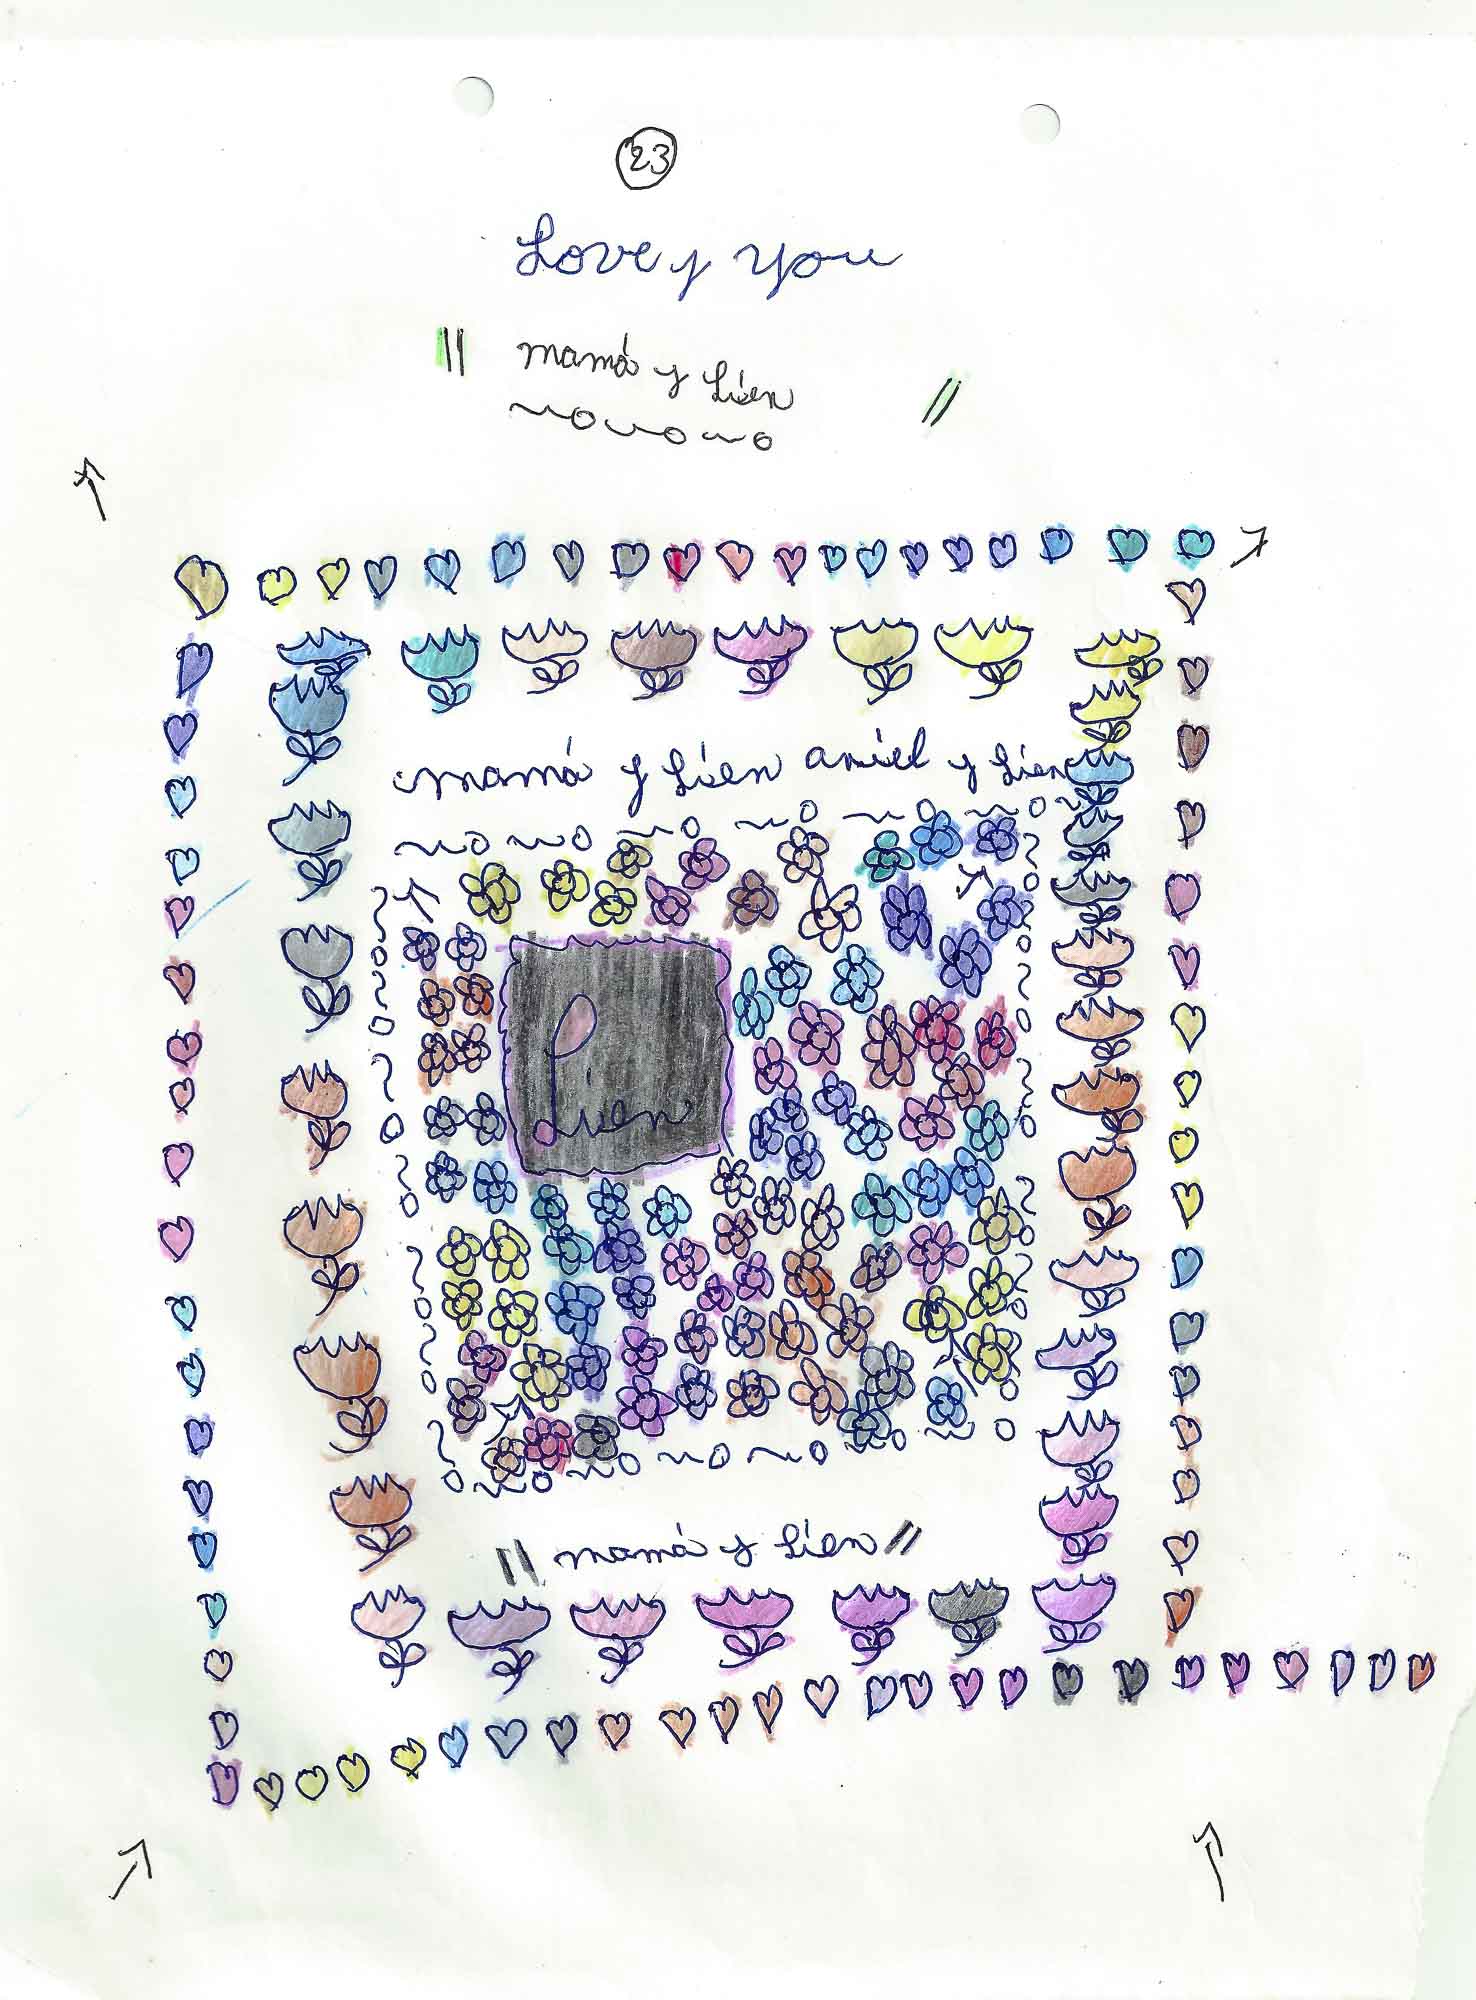 23
Love y you
|| mamá y Lien ||
mamá y Lien ariel y Lien
Lien
|| mamá y Lien ||